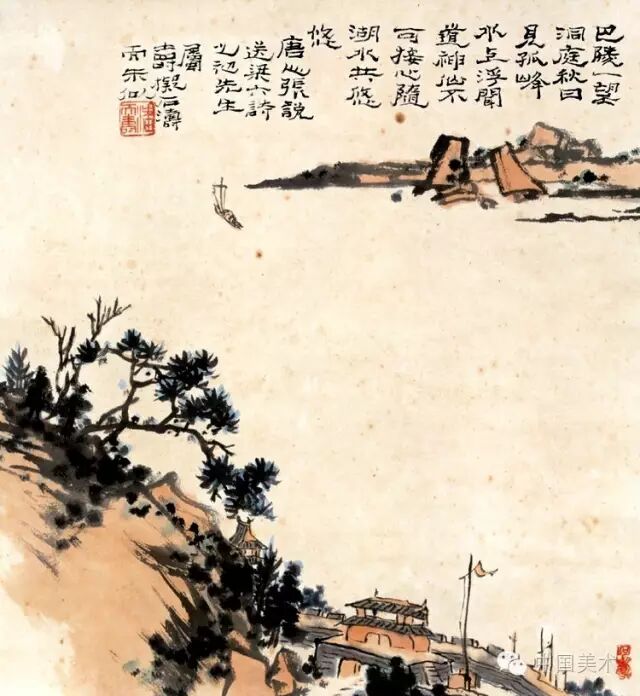 巴陵一望
洞庭秋日
見孤峰
水上浮聞
道神仙不
可接心隨
湖水共悠
悠
唐人張說
送梁六詩
初先生
屬
壽 石濤
而未似
中国美术